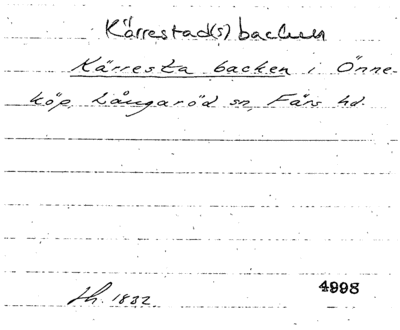 Kärrestad(s)backen
Kärresta backen i Önne-
köp, Långaröd sn, Färs hd.
Jh. 1832
4998